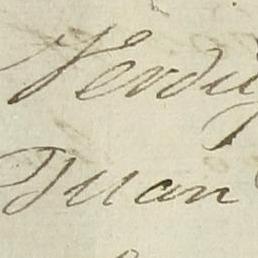 Verdug
Juan